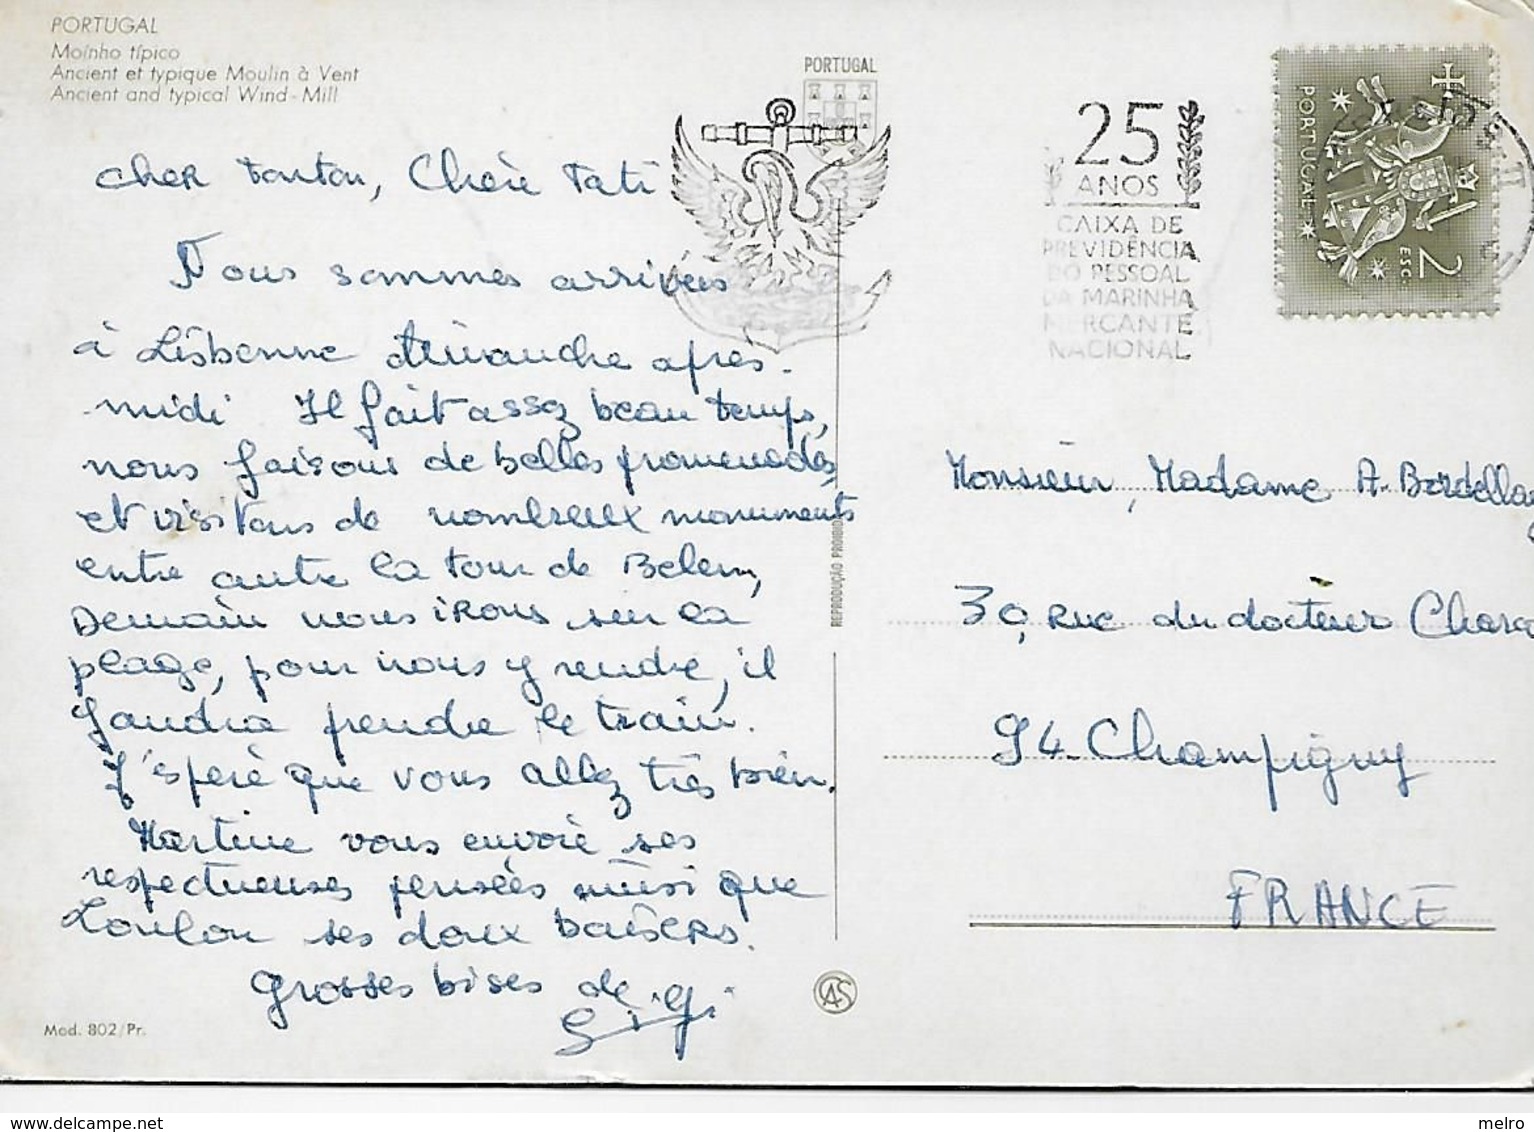 PORTUGAL
Moínho típico
Ancient et typique Moulin à Vent
Ancient and typical Wind-Mill
cher tonton, Chère Tati
Nous sommes arrivées
à Lisbonne dimanche après-
midi Il fait assez beau temps,
nous faisons de belles promenades
et visitons de nombreux monuments
entre autre la tour de Belem,
Demain nous irons sur la
plage, pour nous y rendre, il
faudra prendre le train.
J'espère que vous allez très bien.
Martine vous envoie ses
respectueuses pensées ainsi que
Loulou ses doux baisers.
Grosses bises de
Gigi
Mod. 802/Pr.
REPRODUÇÃO PROIBIDA
CAS
PORTUGAL
25
ANOS
CAIXA DE
PREVIDÊNCIA
DO PESSOAL
DA MARINHA
MERCANTE
NACIONAL
PORTUGAL
2 ESC.
Monsieur, Madame A. Bordellay
39, Rue du docteur Charc
94-Champigny
FRANCE
www.delcampe.net
melro